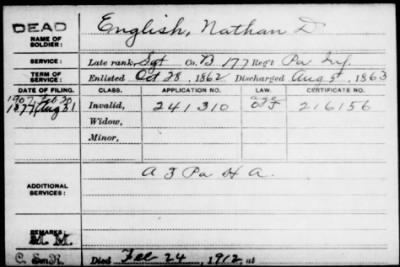 DEAD
NAME OF SOLDIER: English, Nathan D.
SERVICE: Late rank, Sgt Co. B 177 Reg't Pa Inf.
TERM OF SERVICE: Enlisted Oct 28, 1862 Discharged Aug 5, 1863
DATE OF FILING. CLASS. APPLICATION NO. LAW. CERTIFICATE NO.
1877 Aug 31 Invalid, 241310 216156
Widow,
Minor,
ADDITIONAL SERVICES: A 3 Pa H A.
REMARKS:
Died Feb 24, 1912, at